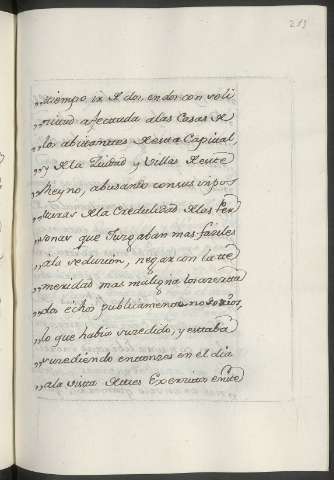 213
„tiempo ix A dos, en dos con soli
„citud afectada alas Casas de
„los abitantes de esta Capital,
„y de la Ziudad y Villas de este
„Reyno, abusando con sus impos
„turas de la Credulidad de los Per
„sonas que Juzgaban mas faciles
„ála seducion, negar con la te
„meridad mas maligna los azerta
„dos échos publicamente notorios,
„lo que habia sucedido, y estaba
„sucediendo entonzes en el dia
„ala vista de tres Exercitos entre